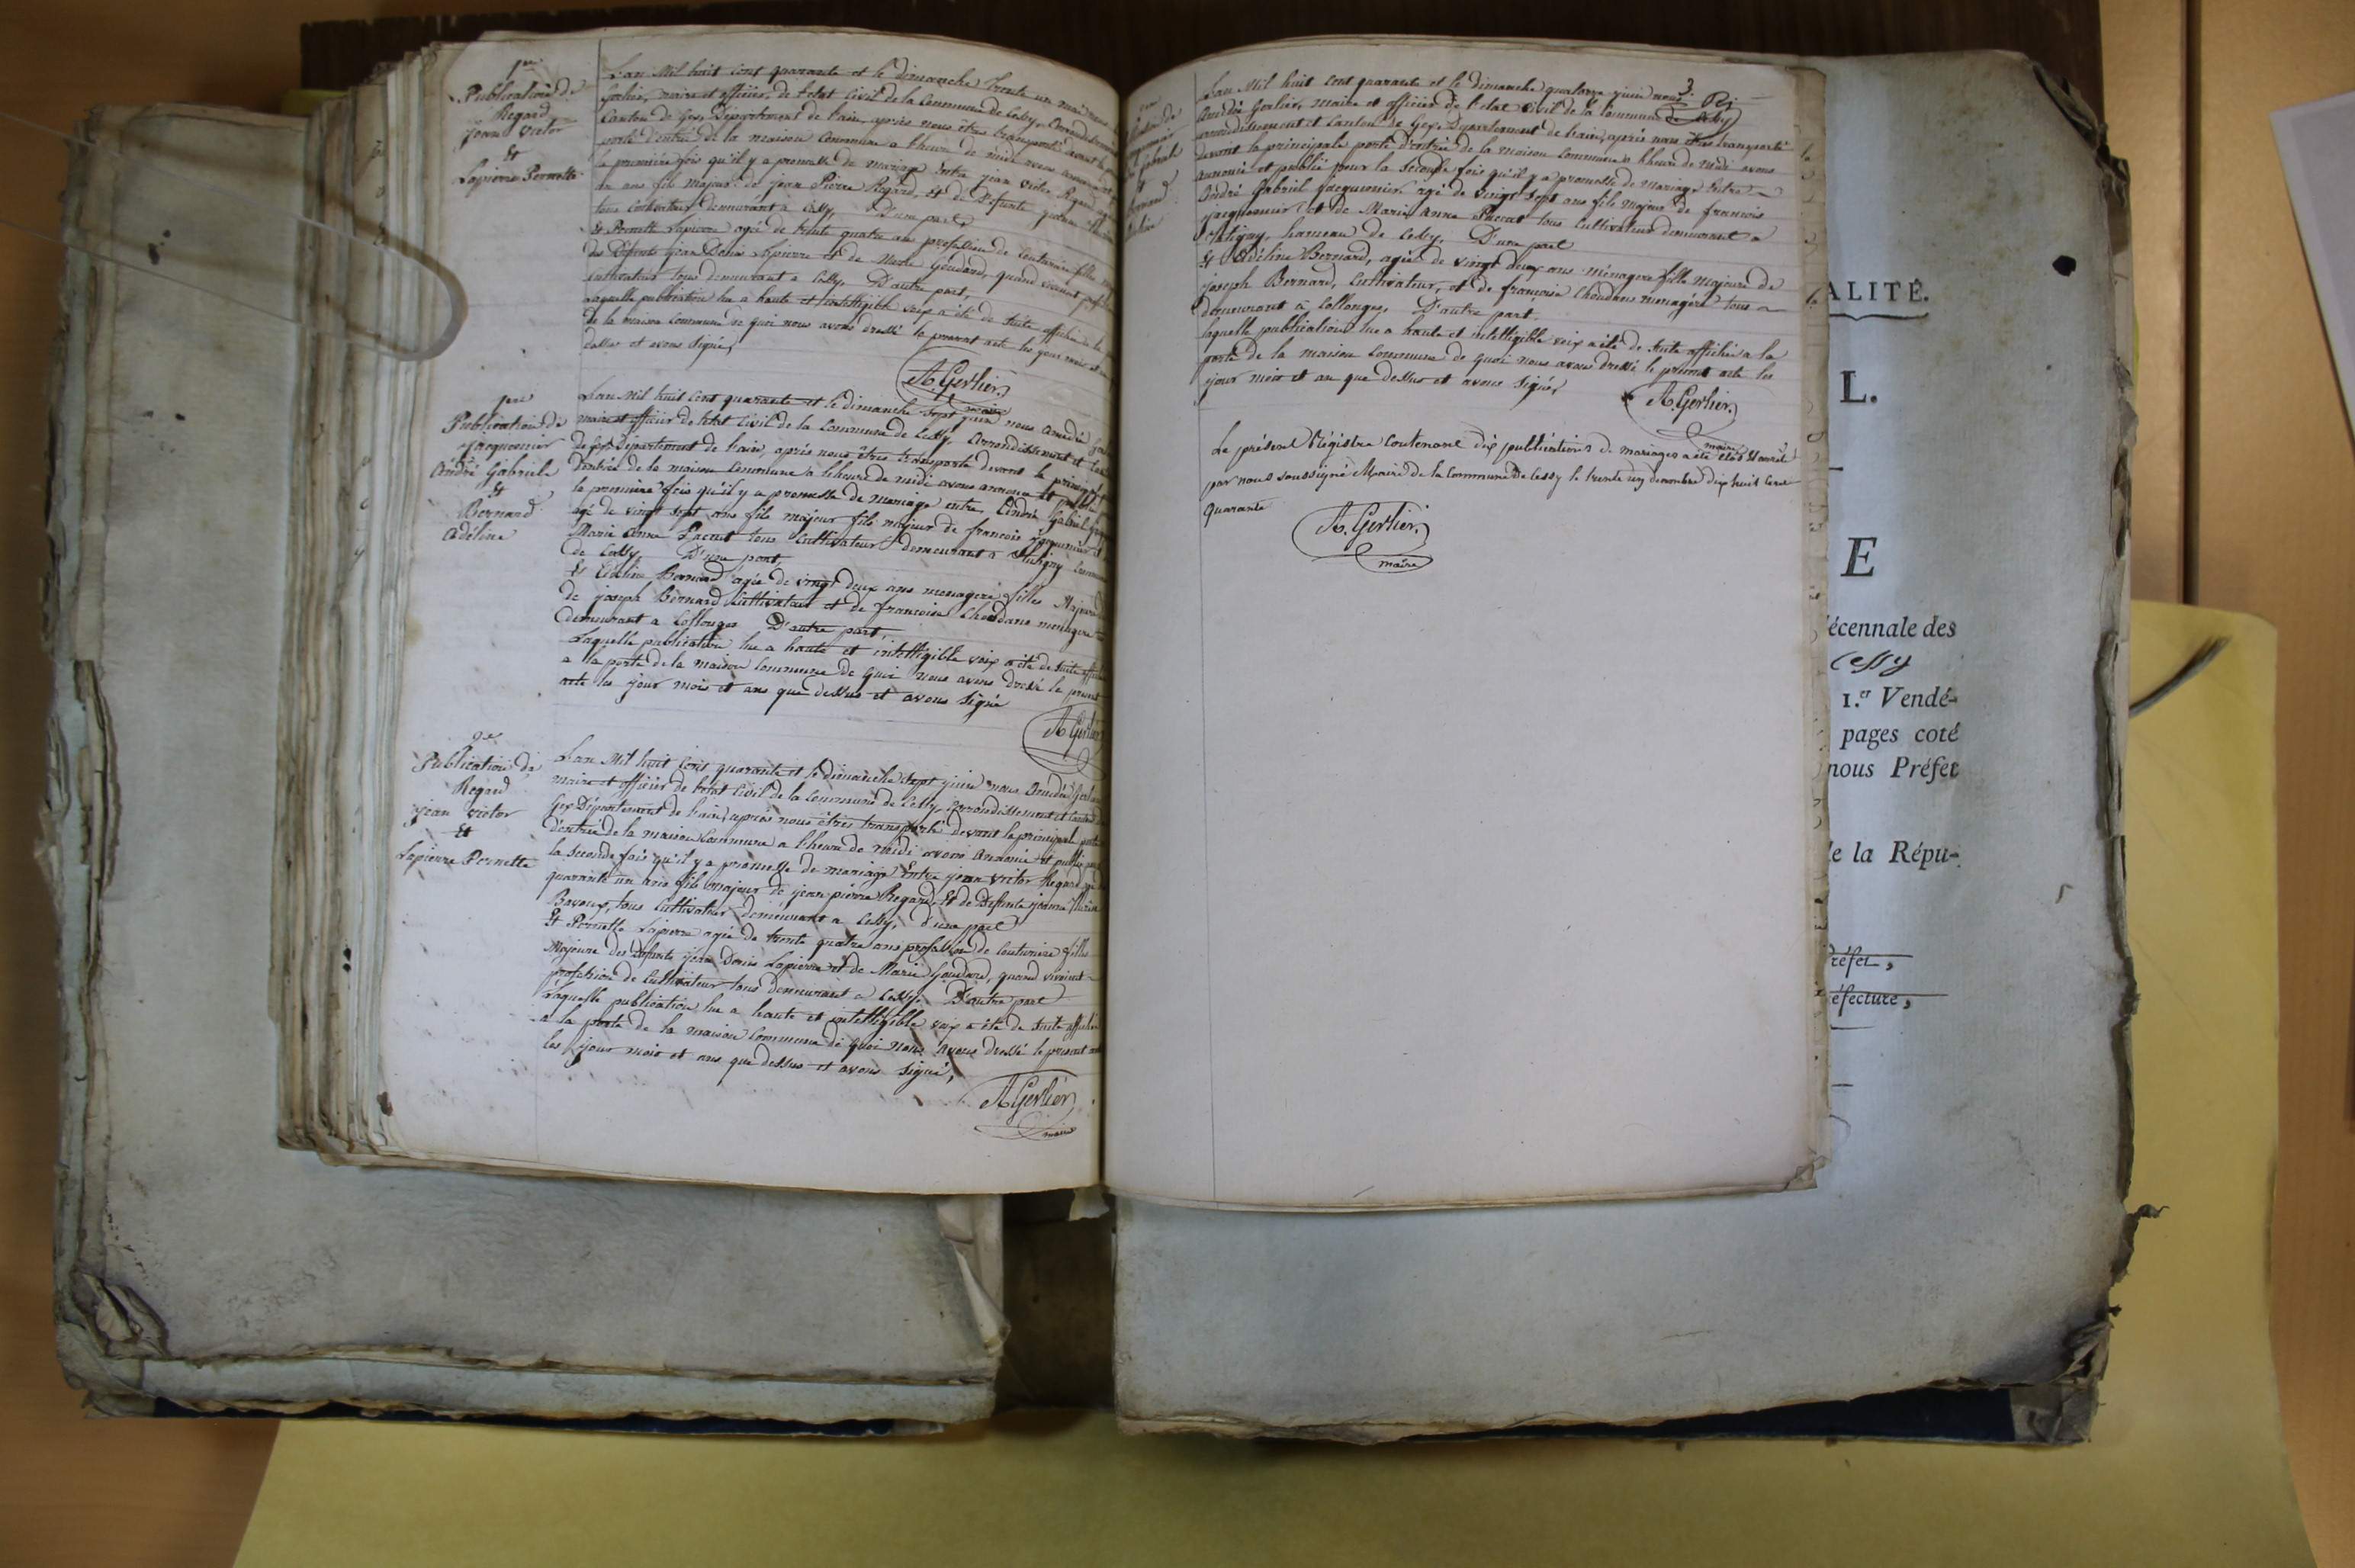 1re
Publication de
Regard
jean victor
Et
Lapierre Pernette
L'an Mil huit cent quarante et le dimanche trente un mai nous
Gerlier, maire et officier de l'etat Civil de la Commune de Cessy, Arrondissement
Canton de Gex, Département de l'ain, après nous êtres transporté devant la
porte d'entrée de la maison Commune a l'heure de midi avons annoncé et
la première fois qu'il y a promesse de mariage Entre jean victor Regard
un ans fils majeur de jean Pierre Regard, et de Défunte jeanne
tous Cultivateur demeurant a Cessy, D'une part,
Et Pernette Lapierre agée de trente quatre ans profession de Couturière fille
des Défunts jean Denis Lapierre et de Marie Goudard, quand vivaient
Cultivateur tous demeurant a Cessy. D'autre part,
Laquelle publication lue a haute et intelligible voix a été de suite affichée a la
de la maison Commune de quoi nous avons dressé le present acte les jour mois et
dessus et avons signé,
A. Gerlier
maire
1re
Publication de
Jacquemier
André Gabriele
Et
Bernard
Adéline
L'an Mil huit Cent quarante et le dimanche Sept juin nous Amédé
maire et officier de l'etat Civil de la Commune de Cessy, Arrondissement et
de Gex, Département de l'ain, après nous êtres transporté devant la principale
D'entrée de la maison Commune a l'heure de midi avons annoncé et publié
la première fois qu'il y a promesse de mariage entre André Gabriel
agé de vingt sept ans fils majeur fils majeur de francois Jacquemier et
Marie Anne Pacrat tous Cultivateur demeurant a
de Cessy, D'une part,
Et Adéline Bernard agée de vingt deux ans menagere filles Majeure
de joseph Bernard Cultivateur et de francoise Choudans menagere
demeurant a Collonges D'autre part,
Laquelle publication lue a haute et intelligible voix a été de suite affichée
a la porte de la maison Commune de quoi nous avons dressé le present
acte les jour mois et ans que dessus et avons signé
A. Gerlier
2e
Publication de
Regard
jean victor
Et
Lapierre Pernette
L'an Mil huit Cent quarante et le dimanche Sept juin nous Amédé Gerlier
maire et officier de l'etat Civil de la Commune de Cessy, Arrondissement et Canton
Gex Département de l'ain, après nous êtres transporté devant la principale porte
d'entrée de la maison Commune a l'heure de midi avons annoncé et publié
la Seconde fois qu'il y a promesse de mariage Entre jean victor Regard
quarante un ans fils majeur de jean pierre Regard, Et de Défunte jeanne
Bavoux, tous Cultivateur demeurant a Cessy, d'une part
Et Pernette Lapierre agée de trente quatre ans profession de Couturière fille
Majeure des Défunts jean Denis Lapierre et de Marie Goudard, quand vivaient
profession de Cultivateur tous demeurant a Cessy. D'autre part
Laquelle publication lue a haute et intelligible voix a été de suite affichée
a la porte de la maison Commune de quoi nous avons dressé le present acte
les jour mois et ans que dessus et avons signé,
A. Gerlier
maire
3.
L'an Mil huit Cent quarante et le dimanche quatorze juin nous
Amédé Gerlier, maire et officier de l'etat Civil de la Commune de Cessy
arrondissement et Canton de Gex, Departement de l'ain, après nous êtres transporté
devant la principale porte d'entrée de la maison Commune a l'heure de midi avons
annoncé et publié pour la Seconde fois qu'il y a promesse de mariage Entre
André Gabriel Jacquemier, agé de vingt Sept ans fils Majeur de francois
Jacquemier, et de Marie Anne Pacrat tous Cultivateur demeurant a
hameau de Cessy. D'une part
Et Adéline Bernard, agée de vingt deux ans Ménagere fille Majeure de
joseph Bernard, Cultivateur, et de francoise Choudans menagère tous
demeurant a Collonges, D'autre part.
laquelle publication lue a haute et intelligible voix a été de suite affichée a la
porte de la maison Commune de quoi nous avons dressé le present acte les
jour mois et an que dessus et avons signé,
A. Gerlier
maire
Le présent Régistre Contenant dix publications de mariages a été Clos et arreté
par nous soussigné Maire de la Commune de Cessy le trente un decembre dix huit Cent
quarante
A. Gerlier
maire
ALITÉ.
L.
E
écennale des
Cessy
1.er Vendé-
pages coté
nous Préfet
de la Répu-
réfet,
éfecture,